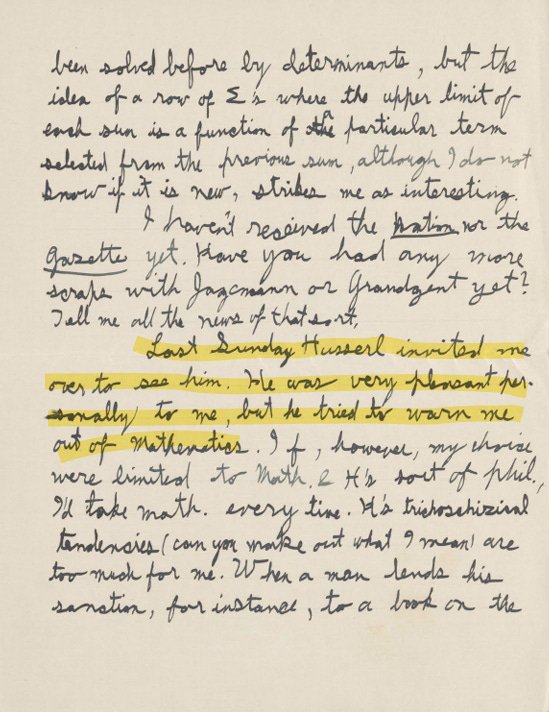 been solved before by determinants, but the
idea of a row of Σ's where the upper limit of
each sum is a function of the particular term
selected from the previous sum, although I do not
know if it is new, strikes me as interesting.
I haven't received the Nation nor the
Gazette yet. Have you had any more
scraps with Jagemann or Grandgent yet?
Tell me all the news of that sort.
Last Sunday Husserl invited me
over to see him. He was very pleasant per-
sonally to me, but he tried to warn me
out of Mathematics. If, however, my choice
were limited to Math. & H's sort of phil.,
I'd take math. every time. H's trichoschizical
tendencies (can you make out what I mean) are
too much for me. When a man lends his
sanction, for instance, to a book on the